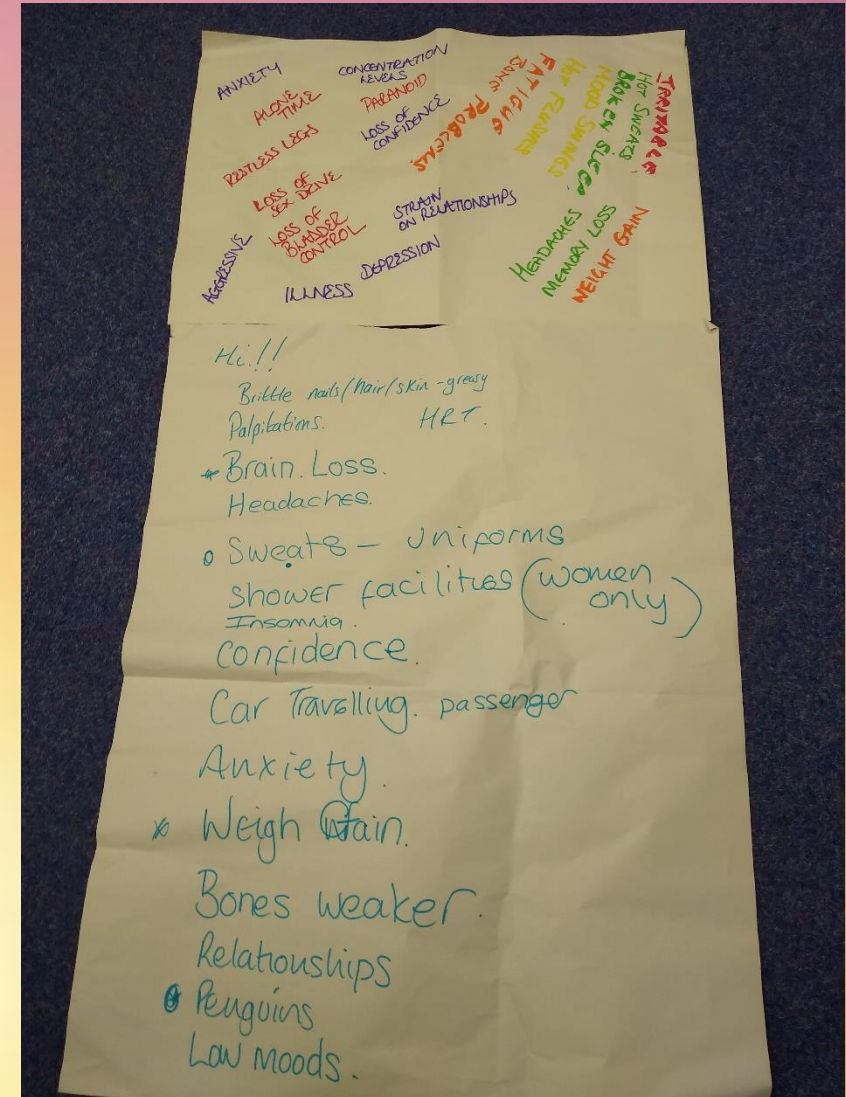 ANXIETY
ALONE
TIME
RESTLESS LEGS
LOSS OF
SEX DRIVE
LOSS OF
BLADDER
CONTROL
AGGRESSIVE
ILLNESS
CONCENTRATION
LEVELS
PARANOID
LOSS OF
CONFIDENCE
STRAIN
ON RELATIONSHIPS
DEPRESSION
BONE PROBLEMS.
FATIGUE
HOT FLUSHES
MOOD SWINGS
BROKEN SLEEP.
HOT SWEATS
IRRITABLE.
HEADACHES
MEMORY LOSS
WEIGHT GAIN
Hi!!
Brittle nails/hair/skin - greasy
Palpitations. HRT.
Brain. Loss.
Headaches.
Sweats - uniforms
Shower facilities (women
only)
Insomnia.
Confidence.
Car Travelling. passenger
Anxiety.
Weigh Gain.
Bones weaker.
Relationships
Penguins
Low moods.